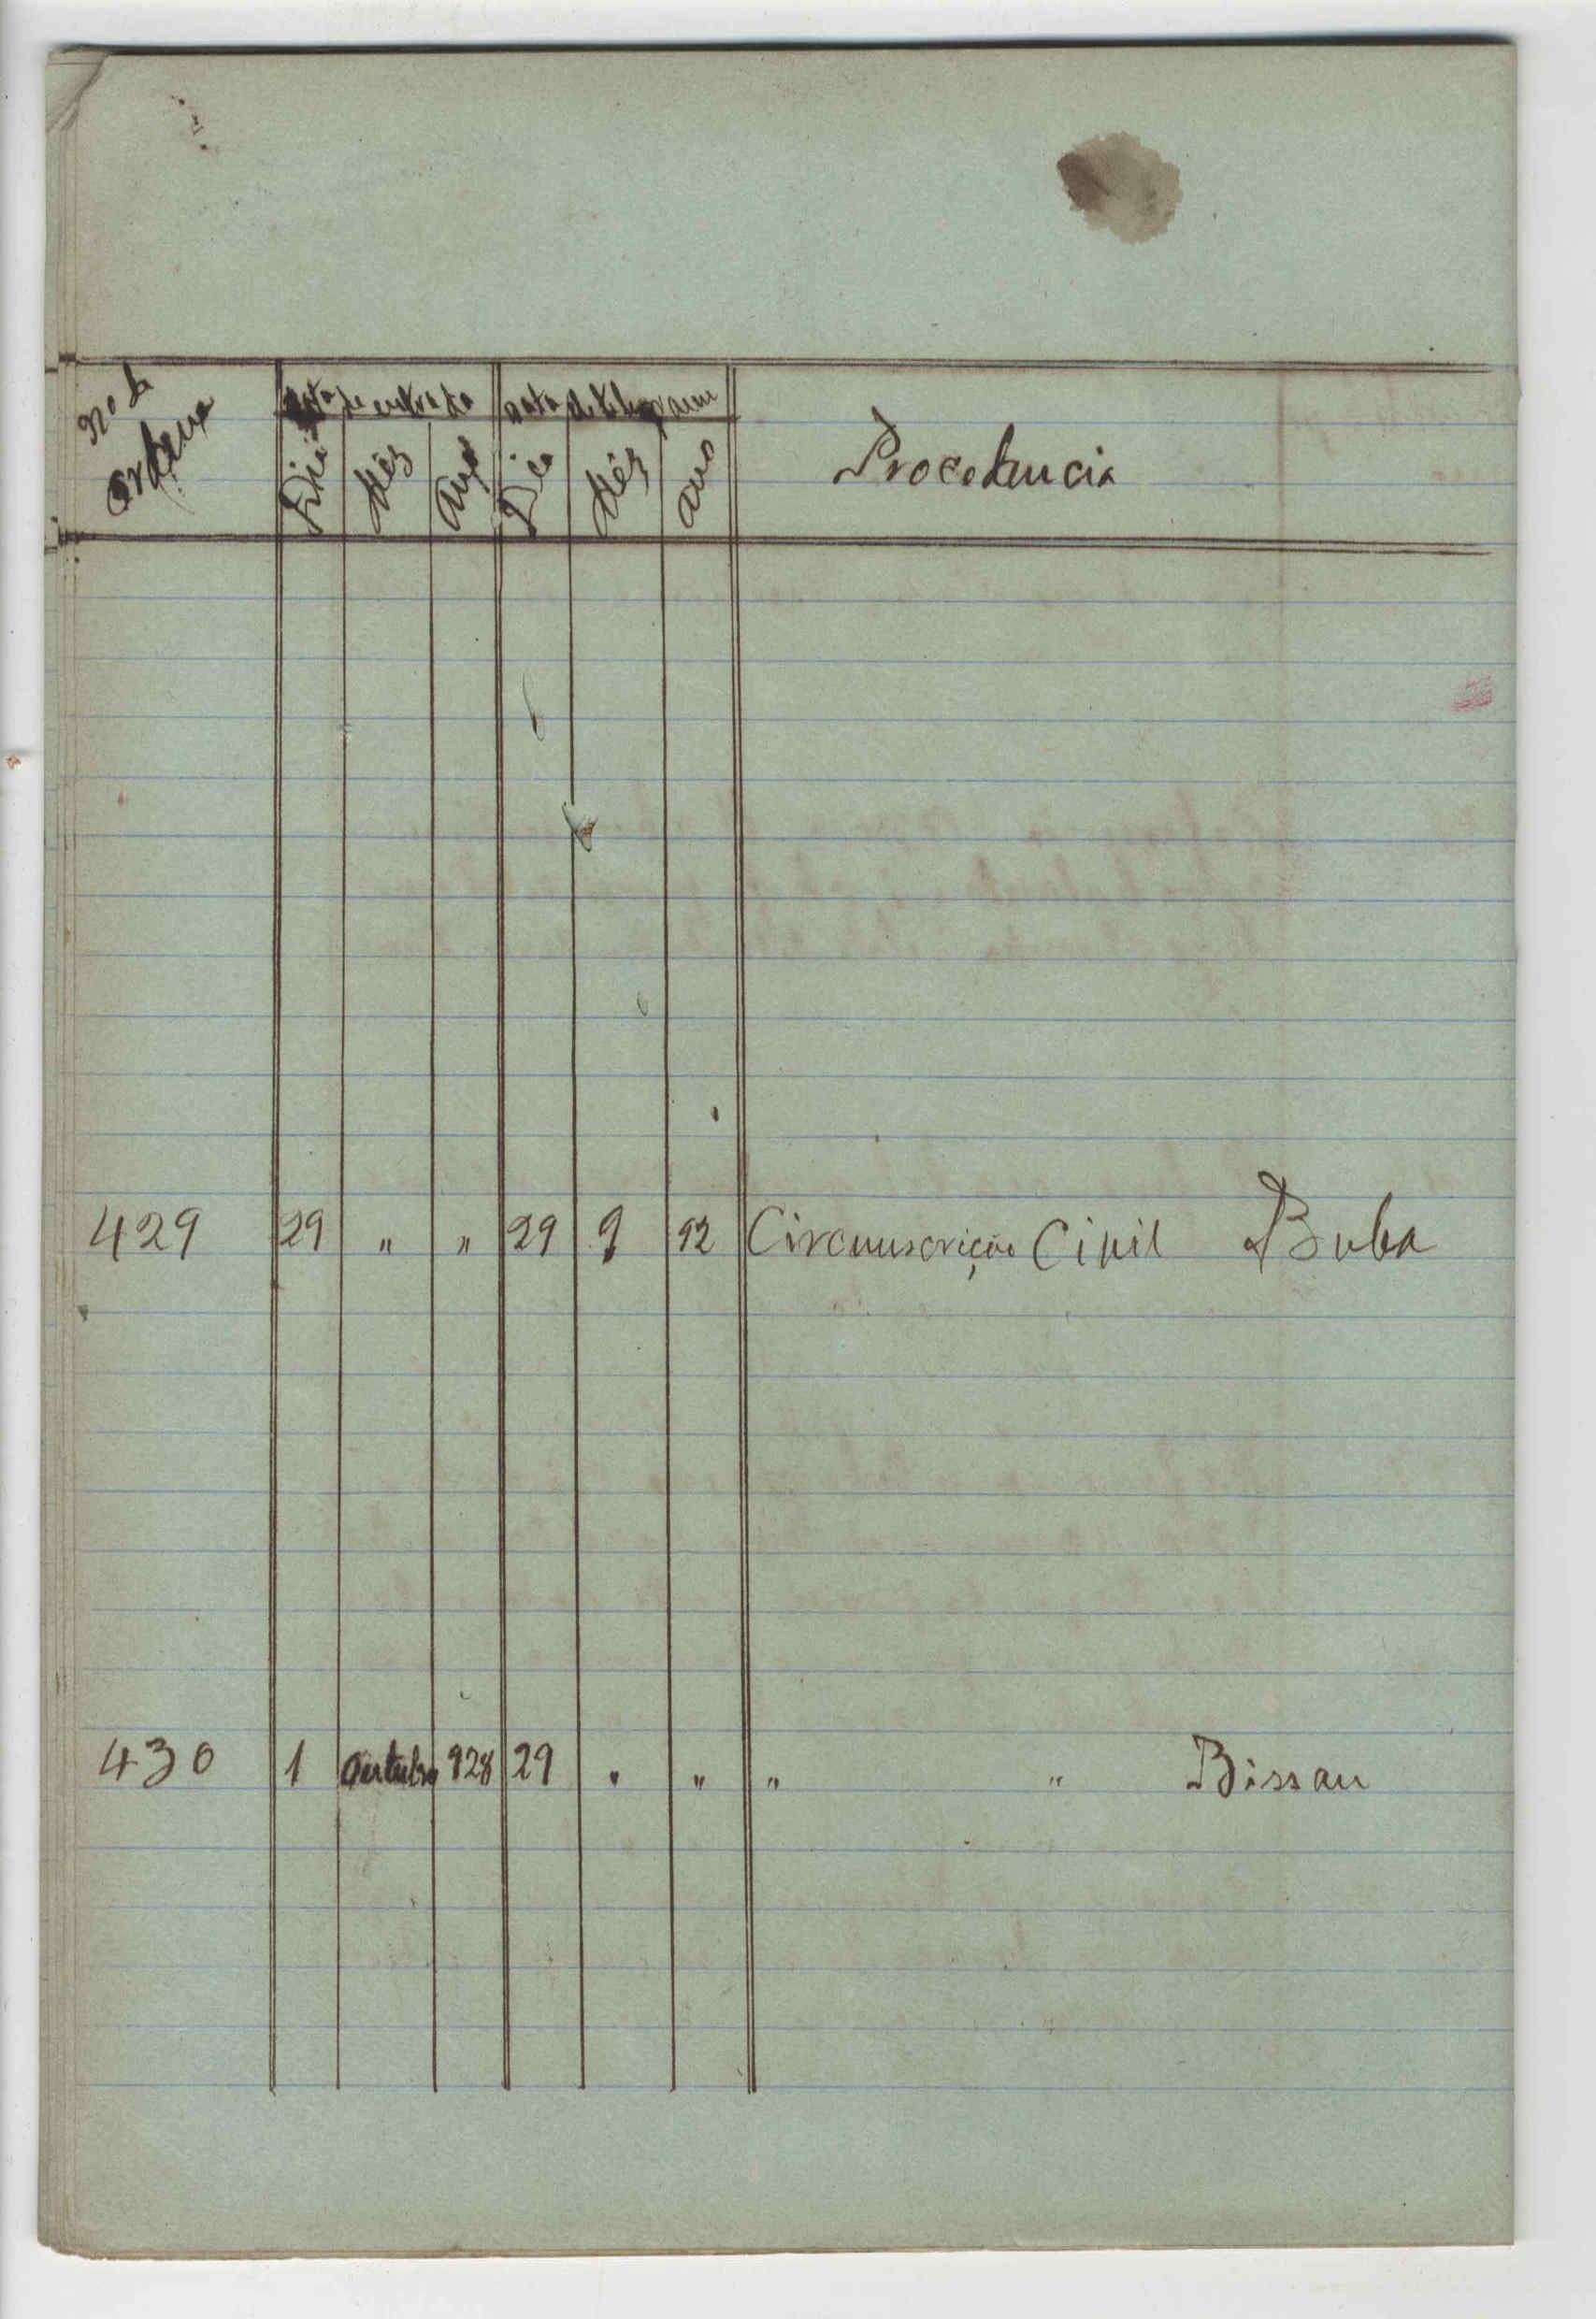 No de Data de entrada Data do telegrama
ordem Dia Mês Ano Dia Mês ano Procedencia
429 29 " " 29 9 92 Circunscrição Civil Buba
430 1 Outubro 928 29 " " " " Bissau